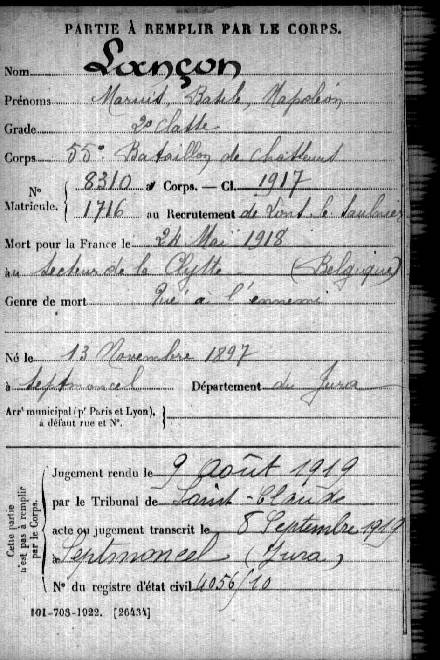 PARTIE À REMPLIR PAR LE CORPS.
Nom Lançon
Prénoms Marius, Basile, Napoléon
Grade 2e classe
Corps 55e Bataillon de Chasseurs
N° Matricule. 8310 au Corps. — Cl. 1917
1716 au Recrutement de Lons le Saulnier
Mort pour la France le 24 Mai 1918
au secteur de la Clytte (Belgique)
Genre de mort Tué à l'ennemi
Né le 13 Novembre 1897
à Septmoncel Département du Jura
Arrt municipal (pr Paris et Lyon), à défaut rue et N°.
Cette partie n'est pas à remplir par le Corps.
Jugement rendu le 9 Août 1919
par le Tribunal de Saint-Claude
acte ou jugement transcrit le 8 Septembre 1919
à Septmoncel (Jura)
N° du registre d'état civil 4056/10
101-708-1922. [26434]